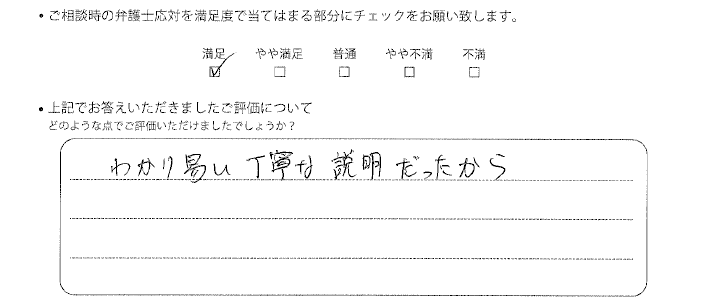 • ご相談時の弁護士応対を満足度で当てはまる部分にチェックをお願い致します。
満足 やや満足 普通 やや不満 不満
☑ □ □ □ □
• 上記でお答えいただきましたご評価について
どのような点でご評価いただけましたでしょうか？
わかり易い丁寧な説明だったから